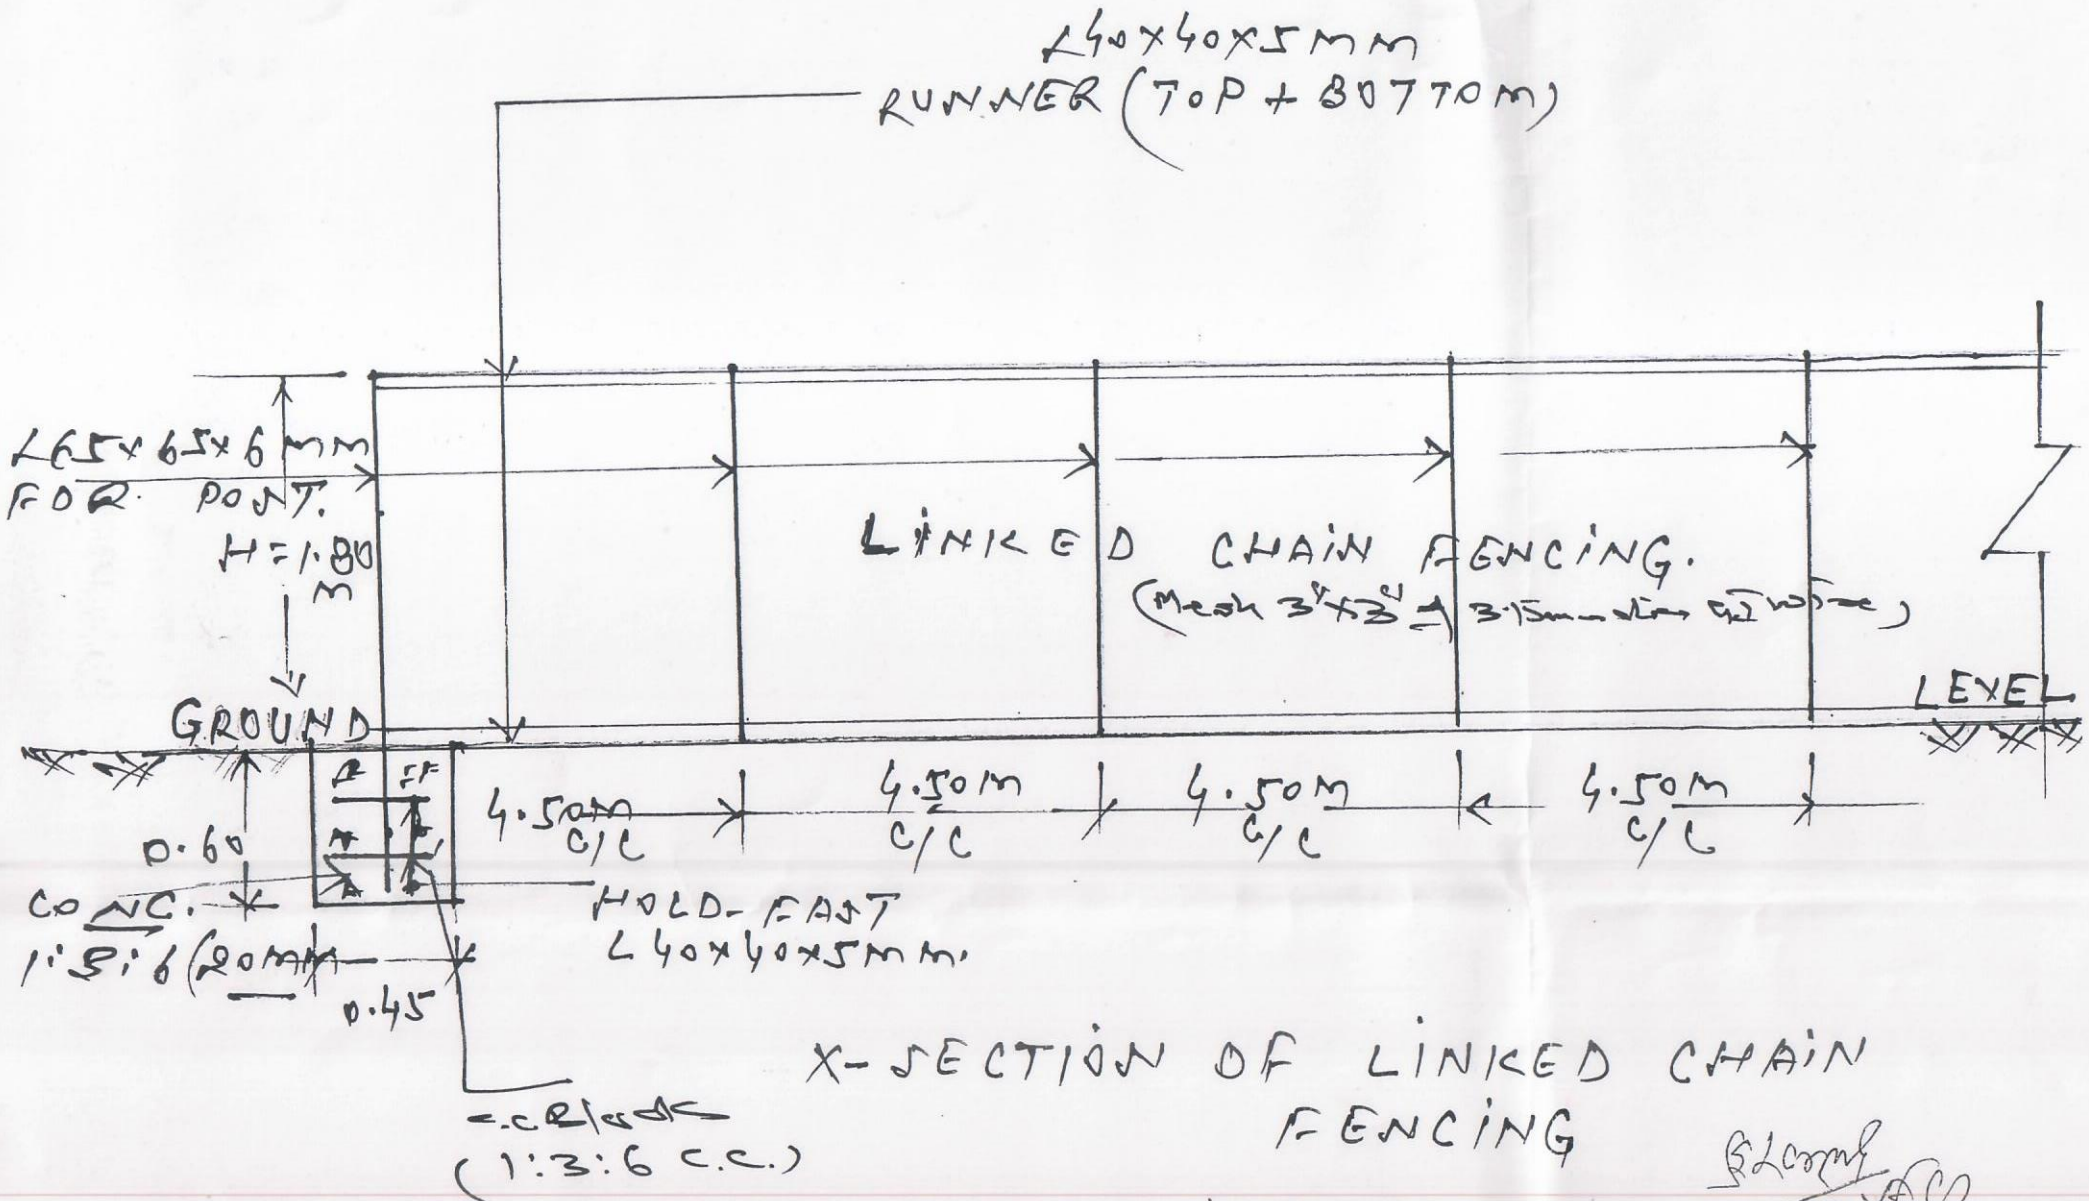 L40x40x5mm
RUNNER (TOP + BOTTOM)
L65x65x6mm
FOR POST.
H=1.80
m
LINKED CHAIN FENCING.
(Mesh 3"x3" of 3.15mm dia GI wire)
GROUND
LEVEL
4.50m
C/C
4.50m
C/C
4.50m
C/C
4.50m
C/C
0.60
CONC.
1:3:6 (20mm
0.45
HOLD-FAST
L40x40x5mm.
c.c Block
(1:3:6 C.C.)
X-SECTION OF LINKED CHAIN
FENCING